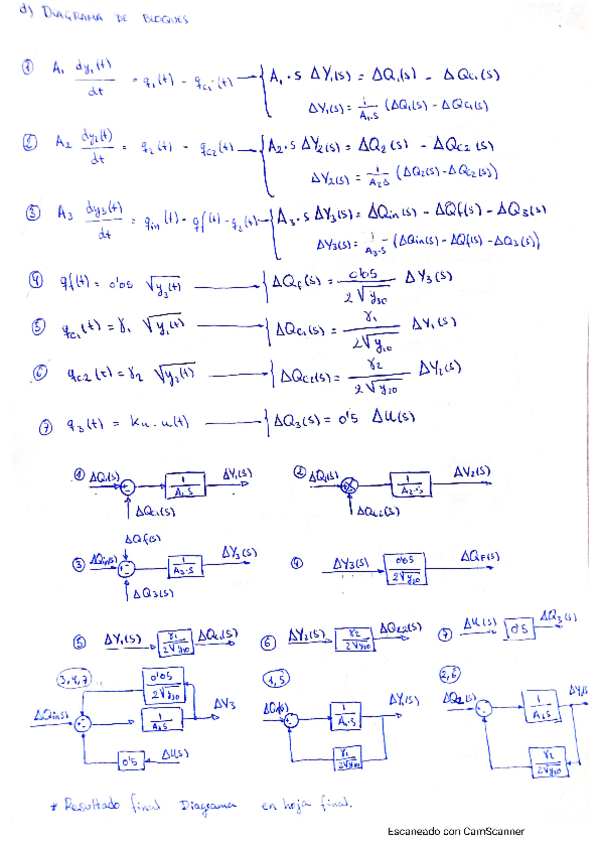 d) DIAGRAMA DE BLOQUES
① A₁ dy₁(t)/dt = q₁(t) - q_c₁(t) — { A₁·s ΔY₁(s) = ΔQ₁(s) - ΔQc₁(s)
ΔY₁(s) = 1/A₁.s (ΔQ₁(s) - ΔQc₁(s)
② A₂ dy₂(t)/dt = q₂(t) - q_c₂(t) — { A₂·s ΔY₂(s) = ΔQ₂(s) - ΔQc₂(s)
ΔY₂(s) = 1/A₂s (ΔQ₂(s) - ΔQc₂(s))
③ A₃ dy₃(t)/dt = q_in(t) - qf(t) - q₃(t) — { A₃·s ΔY₃(s) = ΔQin(s) - ΔQf(s) - ΔQ₃(s)
ΔY₃(s) = 1/A₃·s (ΔQin(s) - ΔQf(s) - ΔQ₃(s))
④ qf(t) = 0'05 √y₃(t) — { ΔQf(s) = 0'05/2√y₃₀ ΔY₃(s)
⑤ q_c₁(t) = γ₁ √y₁(t) — { ΔQc₁(s) = γ₁/2√y₁₀ ΔY₁(s)
⑥ q_c2(t) = γ₂ √y₂(t) — { ΔQc₂(s) = γ₂/2√y₂₀ ΔY₂(s)
⑦ q₃(t) = ku·u(t) — { ΔQ₃(s) = 0'5 ΔU(s)
① ΔQ₁(s) 1/A₁.s ΔY₁(s) ② 1/A₂·s ΔY₂(s)
ΔQc₁(s) ΔQc₂(s)
ΔQf(s)
③ ΔQin(s) 1/A₃·s ΔY₃(s) ④ ΔY₃(s) 0'05/2√y₃₀ ΔQf(s)
ΔQ₃(s)
⑤ ΔY₁(s) γ₁/2√y₁₀ ΔQc₁(s) ⑥ ΔY₂(s) γ₂/2√y₂₀ ΔQc₂(s) ⑦ ΔU(s) 0'5 ΔQ₃(s)
3,4,7 0'05/2√y₃₀ 1,5 2,6
ΔQin(s) 1/A₃s ΔY₃ ΔQ₁(s) 1/A₁·s ΔY₁(s) ΔQ₂(s) 1/A₂s
0'5 ΔU(s) γ₁/2√y₁₀ γ₂/2√y₂₀
* Resultado final Diagrama en hoja final.
Escaneado con CamScanner